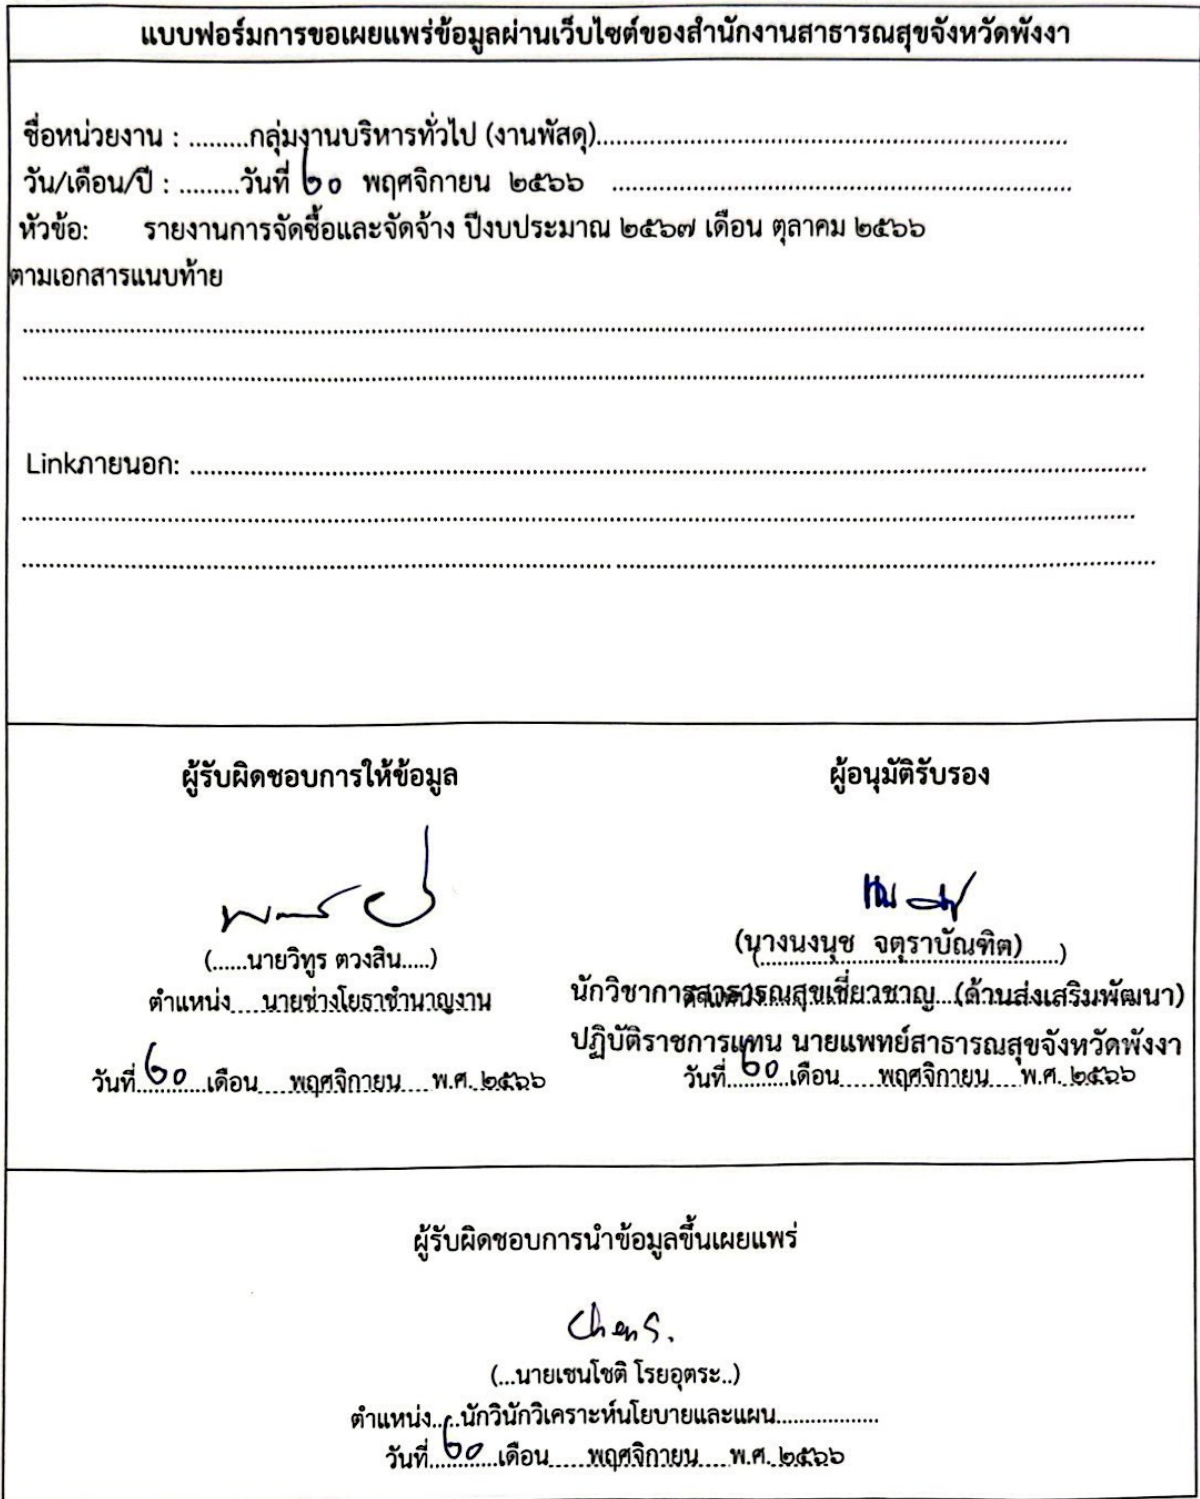 แบบฟอร์มการขอเผยแพร่ข้อมูลผ่านเว็บไซต์ของสำนักงานสาธารณสุขจังหวัดพังงา
ชื่อหน่วยงาน : .........กลุ่มงานบริหารทั่วไป (งานพัสดุ)......................................................................
วัน/เดือน/ปี : .........วันที่ ๒๐ พฤศจิกายน ๒๕๖๖ ......................................................................
หัวข้อ: รายงานการจัดซื้อและจัดจ้าง ปีงบประมาณ ๒๕๖๗ เดือน ตุลาคม ๒๕๖๖
ตามเอกสารแนบท้าย
Linkภายนอก: ......................................................................
ผู้รับผิดชอบการให้ข้อมูล
(......นายวิทูร ตวงสิน.....)
ตำแหน่ง.....นายช่างโยธาชำนาญงาน
วันที่ ๒๐ เดือน.....พฤศจิกายน.....พ.ศ. ๒๕๖๖
ผู้อนุมัติรับรอง
(นางนงนุช จตุราบัณฑิต)
นักวิชาการสาธารณสุขเชี่ยวชาญ (ด้านส่งเสริมพัฒนา)
ปฏิบัติราชการแทน นายแพทย์สาธารณสุขจังหวัดพังงา
วันที่ ๒๐ เดือน.....พฤศจิกายน.....พ.ศ. ๒๕๖๖
ผู้รับผิดชอบการนำข้อมูลขึ้นเผยแพร่
Chen S.
(...นายเชนโชติ โรยอุตระ..)
ตำแหน่ง.....นักวินักวิเคราะห์นโยบายและแผน..................
วันที่ ๒๐ เดือน.....พฤศจิกายน.....พ.ศ. ๒๕๖๖